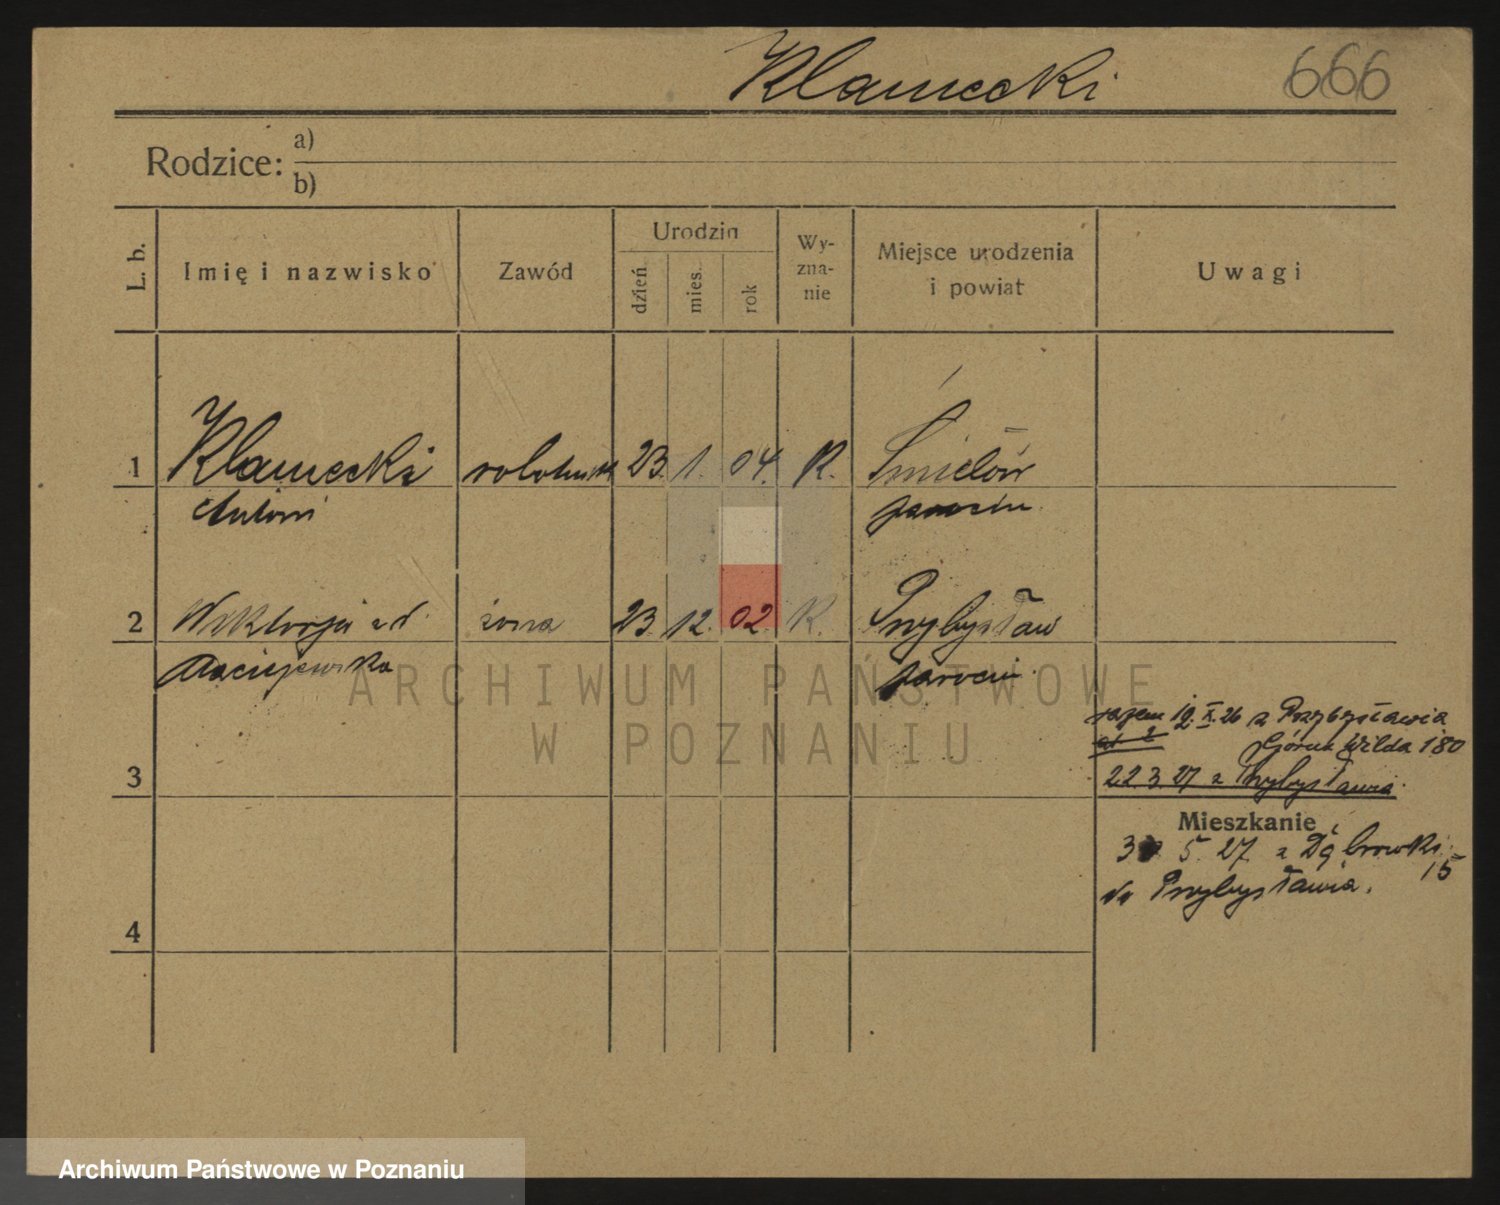 Klamecki 666
Rodzice: a)
b)
L. b. Imię i nazwisko Zawód Urodzin dzień mies. rok Wy-zna-nie Miejsce urodzenia i powiat Uwagi
1 Klamecki robotnik 23. 1. 04. R. Śmiełów
Antoni Jarocin
2 Wiktorja z d. żona 23. 12. 02. R. Przybysław
Maciejewska Jarocin
ARCHIWUM PAŃSTWOWE
W POZNANIU
19. X. 26 z Przybysławia
Górna Wilda 180
3 22.3.27 z Przybysławia
Mieszkanie
5. 27 z Dąbrowki 15
do Przybysławia.
4
Archiwum Państwowe w Poznaniu